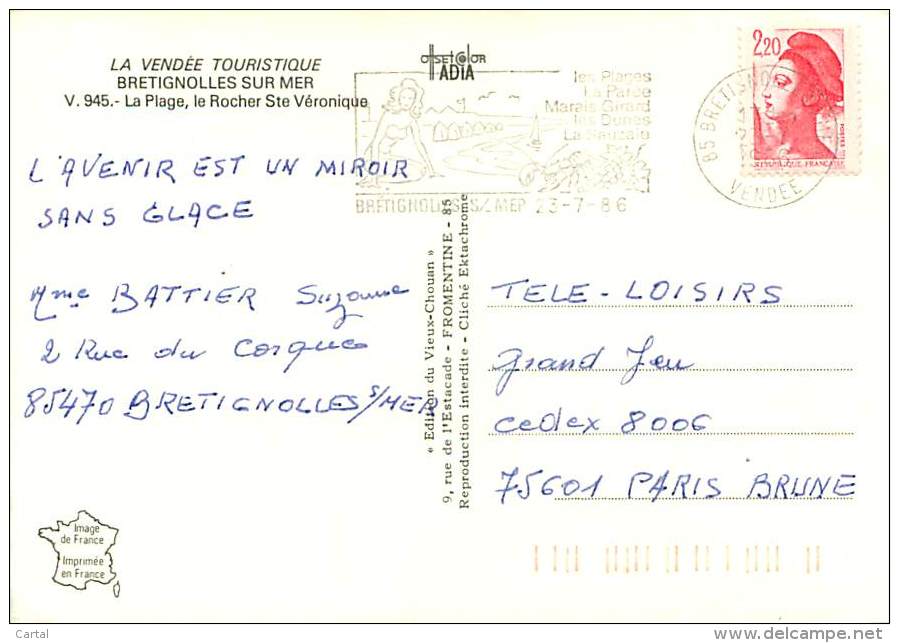 LA VENDÉE TOURISTIQUE
BRETIGNOLLES SUR MER
V. 945.- La Plage, le Rocher Ste Véronique
OffsetColor
ADIA
les Plages
La Parée
Marais Girard
les Dunes
La Sauzaie
BRETIGNOLLES S/MER 23-7-86
2,20
RÉPUBLIQUE FRANÇAISE
POSTES
85 BRETIGNO
VENDEE
L'AVENIR EST UN MIROIR
SANS GLACE
Mme BATTIER Suzanne
2 Rue du Corques
85470 BRETIGNOLLES S/MER
« Edition du Vieux-Chouan »
9, rue de l'Estacade - FROMENTINE - 85
Reproduction interdite - Cliché Ektachrome
TELE-LOISIRS
Grand Jeu
cedex 8006
75601 PARIS BRUNE
Image
de France
Imprimée
en France
Cartal
www.delcampe.net